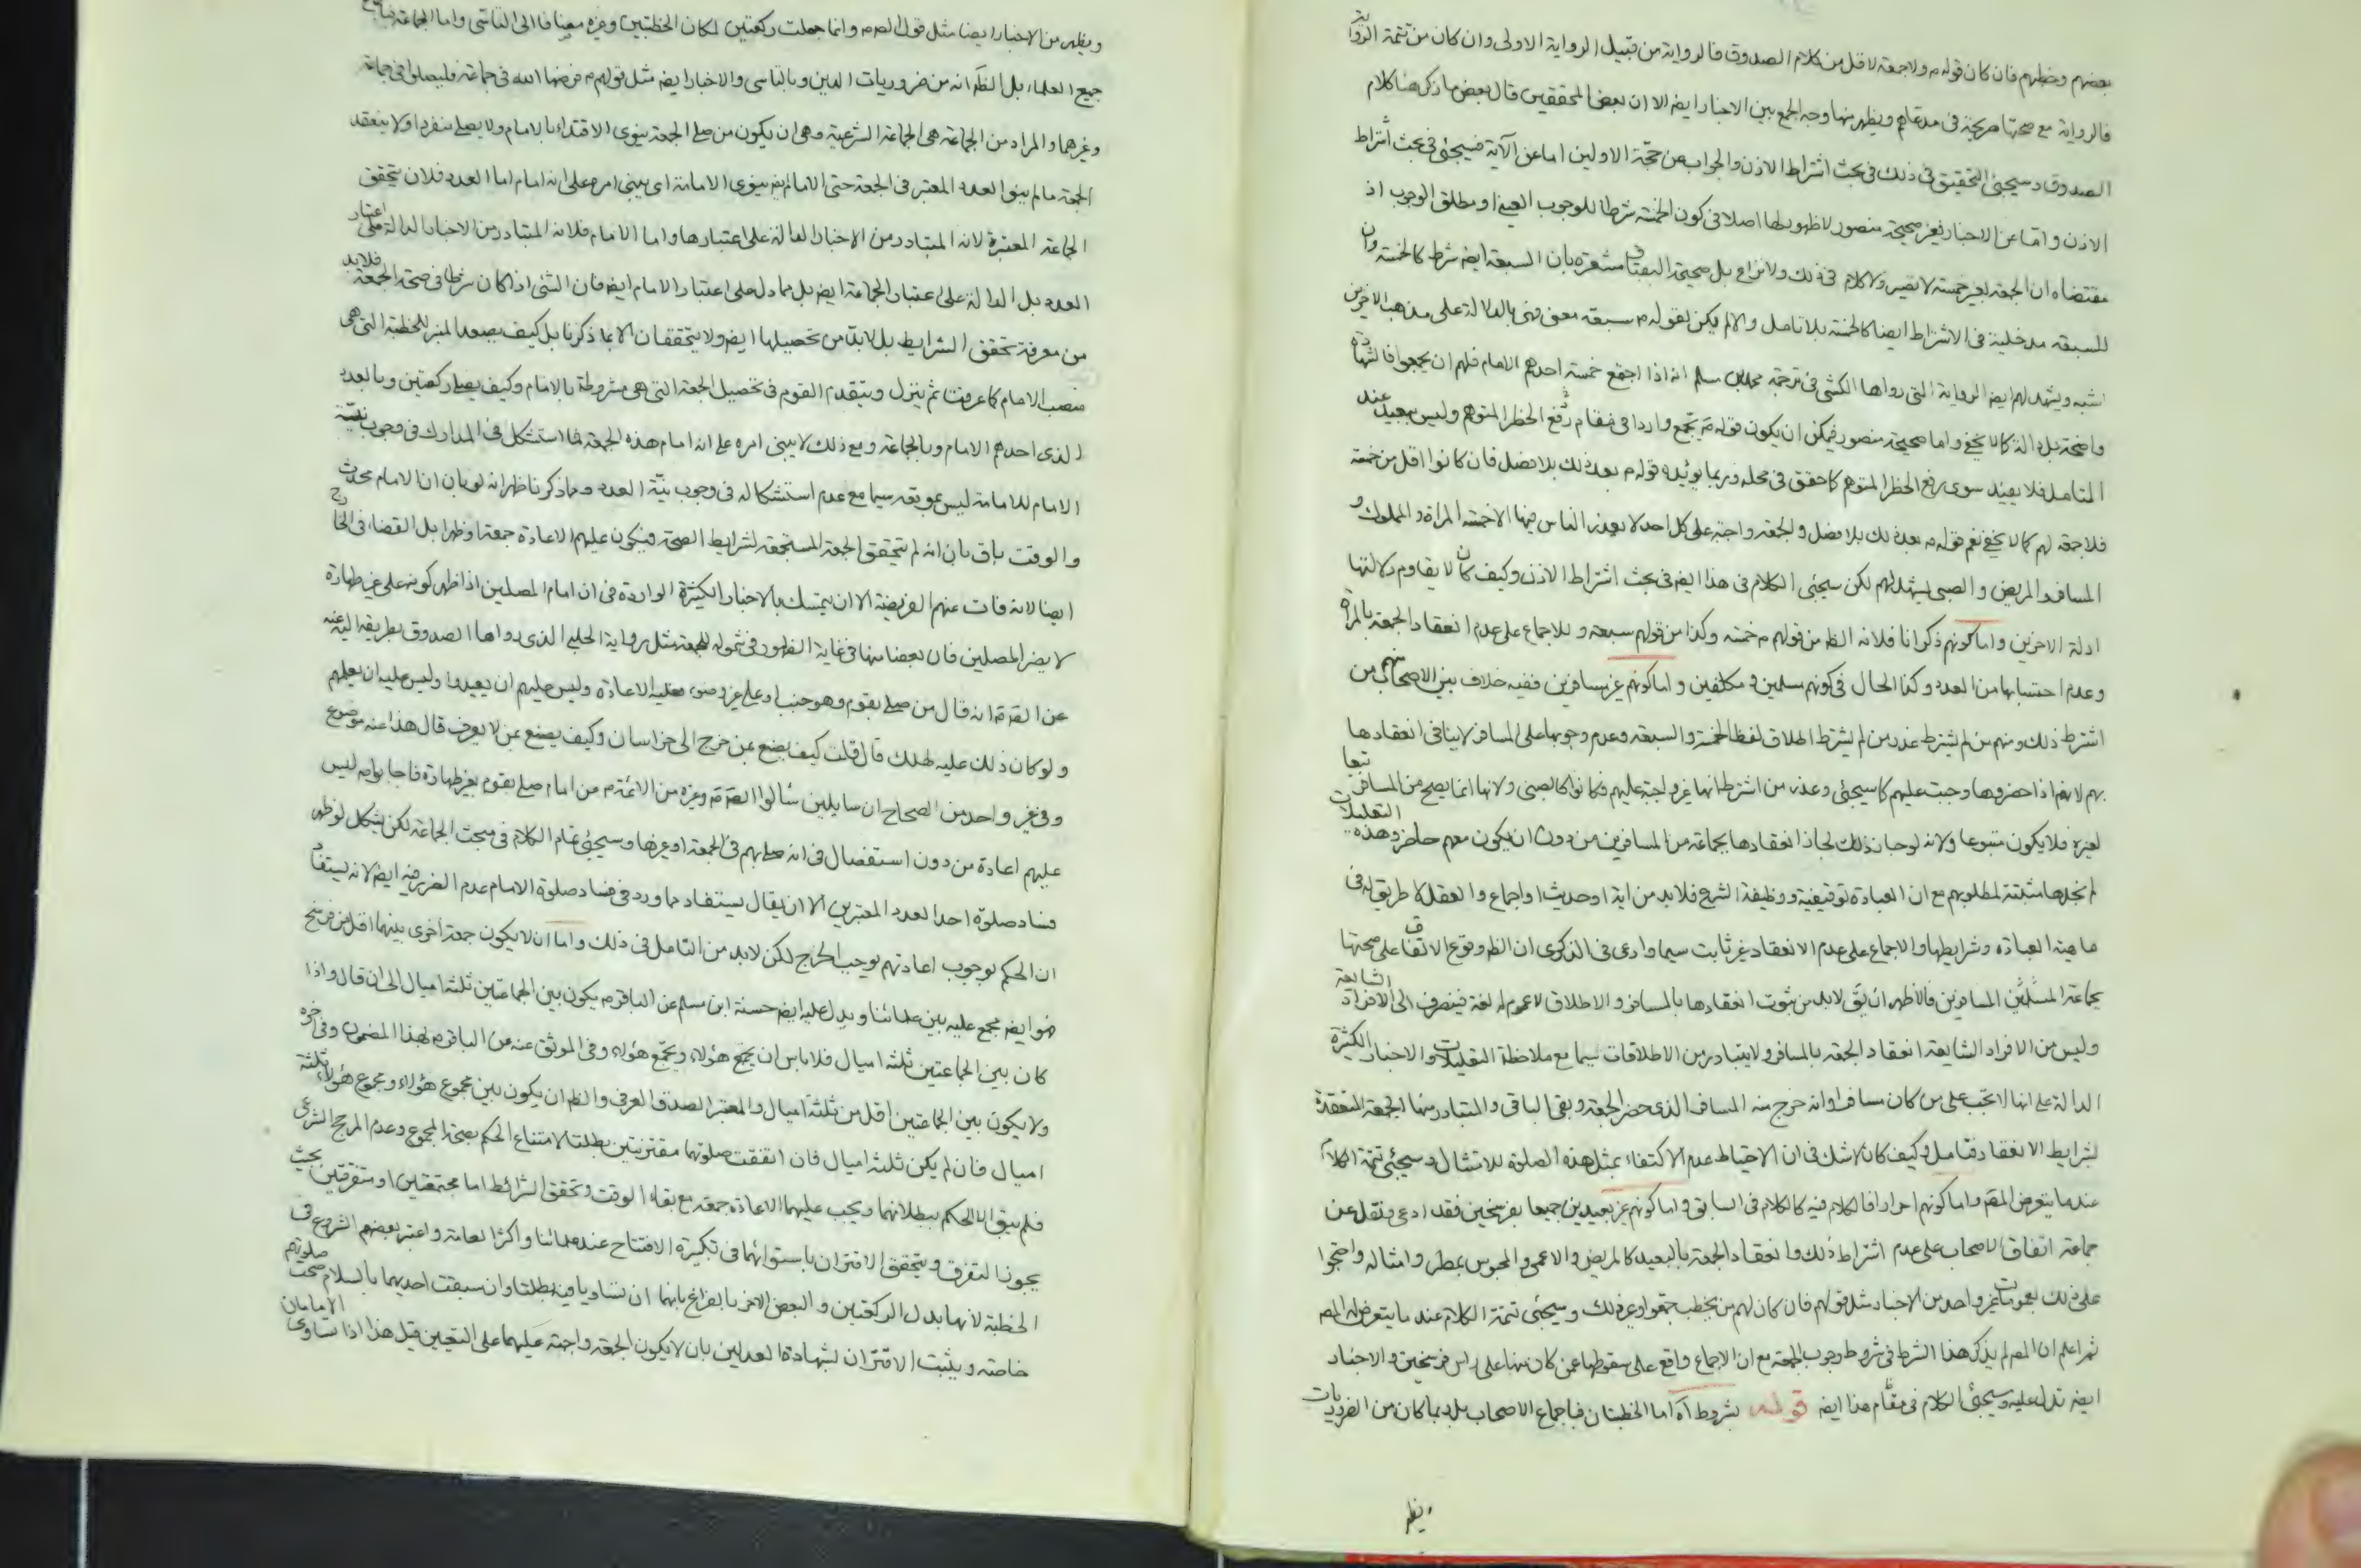 بعضهم وخطبهم فان كان قوله م ولا جمعة لاقل من كلام الصدوق فالرواية من قبيل الرواية الاولى وان كان من تتمة الرواية
فالرواية مع صحتها صريحة في مدعاهم ويظهر منها وجه الجمع بين الاخبار ايض الا ان بعض المحققين قال بعض ما ذكر هنا كلام
الصدوق وسيجئ التحقيق في ذلك في بحث اشتراط الاذن والجواب عن حجة الاولين اما عن الآية فسيجئ في بحث اشتراط
الاذن واما عن الاخبار فغير صحيحة منصور لا ظهور لها اصلا في كون الخمسة شرطا للوجوب العيني او مطلق الوجوب اذ
مقتضاه ان الجمعة بغير خمسة لا تصير ولا كلام في ذلك ولا نزاع بل صحيحة البقباق مشعرة بان السبعة ايض شرط كالخمسة وان
للسبعة مدخلية في الاشتراط ايضا كالخمسة بلا تامل والا لم يكن لقوله م سبعة معنى فهي بالدلالة على مذهب الاخرين
اشبه ويشهد لهم ايض الرواية التي رواها الكشي في ترجمة محمد بن مسلم انه اذا اجتمع خمسة احدهم الامام فلهم ان يجمعوا فالشهادة
واضحة بل دالة كما لا يخفى واما صحيحة منصور فيمكن ان يكون قوله ع يجمع واردا في مقام رفع الحظر المتوهم وليس ببعيد عند
المتامل فلا يفيد سوى رفع الحظر المتوهم كما حقق في محله وربما يؤيده قوله م بعد ذلك بلا فصل فان كانوا اقل من خمسة
فلا جمعة لهم كما لا يخفى نعم قوله م بعد ذلك بلا فصل والجمعة واجبة على كل احد لا يعذر الناس فيها الا خمسة المراة والمملوك و
المسافر والمريض والصبي يشهد لهم لكن سيجئ الكلام في هذا ايض في بحث اشتراط الاذن وكيف كان لا يقاوم دلالتها
ادلة الاخرين واما كونهم ذكرانا فلانه الظ من قولهم م خمسة وكذا من قولهم سبعة وللاجماع على عدم انعقاد الجمعة بالمراة
وعدم احتسابها من العدد وكذا الحال في كونهم مسلمين ومكلفين واما كونهم غير مسافرين ففيه خلاف بين الاصحاب منهم من
اشترط ذلك ومنهم من لم يشترط عذر من لم يشترط اطلاق لفظ الخمسة والسبعة وعدم وجوبها على المسافر لا ينافي انعقادها
بهم لانهم اذا حضروها وجبت عليهم كما سيجئ وعذر من اشترط انها غير واجبة عليهم فكانوا كالصبي ولانها انما يصح من المسافر تبعا
لغيره فلا يكون متبوعا ولانه لو جاز ذلك لجاز انعقادها بجماعة من المسافرين من دون ان يكون معهم حاضر وهذه التعليلات
لم نجدها مثبتة لمطلوبهم مع ان العبادة توقيفية ووظيفة الشرع فلا بد من اية او حديث او اجماع والعقل لا طريق له في
ماهية العبادة وشرايطها والاجماع على عدم الانعقاد غير ثابت سيما وادعى في الذكرى ان الظ وقوع الاتفاق على صحتها
بجماعة المسلمين المسافرين فالاظهر ان يق لا بد من ثبوت انعقادها بالمسافر والاطلاق لا عموم له لغة فينصرف الى الافراد الشايعة
وليس من الافراد الشايعة انعقاد الجمعة بالمسافر ولا يتبادر من الاطلاقات سيما مع ملاحظة التعليلات والاخبار الكثيرة
الدالة على انها لا تجب على من كان مسافرا وانه خرج منه المسافر الذي حضر الجمعة وبقي الباقي والمتبادر منها الجمعة المنعقدة
لشرايط الانعقاد فتامل وكيف كان لا شك في ان الاحتياط عدم الاكتفاء بمثل هذه الصلوة للامتثال وسيجئ تتمة الكلام
عند ما يتعرض المص واما كونهم احرارا فالكلام فيه كالكلام في السابق واما كونهم غير بعيدين جميعا بفرسخين فقد ادعى ونقل عن
جماعة اتفاق الاصحاب على عدم اشتراط ذلك وانعقاد الجمعة بالبعيد كالمريض والاعمى والمحبوس بمطر وامثاله واحتجوا
على ذلك بعمومات غير واحد من الاخبار مثل قولهم فان كان لهم من يخطب جمعوا وغير ذلك وسيجئ تتمة الكلام عند ما يتعرض له المص
ثم اعلم ان المص لم يذكر هذا الشرط في شروط وجوب الجمعة مع ان الاجماع واقع على سقوطها عمن كان منها على راس فرسخين والاخبار
ايض تدل عليه وسيجئ الكلام في مقام هذا ايض قوله بشروط آه اما الخطبتان فباجماع الاصحاب بل ربما كان من الضروريات
ويظهر
ويظهر من الاخبار ايضا مثل قول الص م وانما جعلت ركعتين لمكان الخطبتين وغيره مضافا الى التاسي واما الجماعة فباجماع
جميع العلماء بل الظ انه من ضروريات الدين وبالتاسي والاخبار ايض مثل قولهم م فرضها الله في جماعة فليصلوا في جماعة
وغيرهما والمراد من الجماعة هي الجماعة الشرعية وهي ان يكون من صلى الجمعة ينوي الاقتداء بالامام ولا يصلي منفردا ولا ينعقد
الجمعة ما لم ينوا العدد المعتبر في الجمعة حتى الامام ايض ينوي الامامة اي يبني امره على انه امام اما العدد فلان يتحقق
الجماعة المعتبرة لانه المتبادر من الاخبار الدالة على اعتبارها واما الامام فلانه المتبادر من الاخبار الدالة على اعتبار
العدد بل الدالة على اعتبار الجماعة ايض بل مما دل على اعتبار الامام ايض فان الشئ اذا كان شرطا في صحة الجمعة فلا بد
من معرفة تحقق الشرايط بل لا بد من تحصيلها ايض ولا يتحققان الا بما ذكرنا بل كيف يصعد المنبر للخطبة التي هي
منصب الامام كما عرفت ثم ينزل ويتقدم القوم في تحصيل الجمعة التي هي مشروطة بالامام وكيف يصلي ركعتين وبالعدد
الذي احدهم الامام وبالجماعة ومع ذلك لا يبني امره على انه امام هذه الجمعة فما استشكل في المدارك في وجوب نية
الامام للامامة ليس بموقعه سيما مع عدم استشكاله في وجوب نية العدد ومما ذكرنا ظهر انه لو بان ان الامام محدث
والوقت باق بان انه لم يتحقق الجمعة المستجمعة لشرايط الصحة فيكون عليهم الاعادة جمعة او ظهرا بل القضاء في الخارج
ايضا لانه فات عنهم الفريضة الا ان يتمسك بالاخبار الكثيرة الواردة في ان امام المصلين اذا ظهر كونه على غير طهارة
لا يضر المصلين فان بعضا منها في غاية الظهور في شموله للجمعة مثل رواية الحلبي الذي رواها الصدوق بطريقه اليه عنه
عن الص ع انه قال من صلى بقوم وهو جنب او على غير وضوء فعليه الاعادة وليس عليهم ان يعيدوا وليس عليه ان يعلمهم
ولو كان ذلك عليه لهلك قال قلت كيف يصنع بمن خرج الى خراسان وكيف يصنع بمن لا يعرف قال هذا عنه موضوع
وفي غير واحد من الصحاح ان سايلين سألوا الص ع وغيره من الائمة م من امام صلى بقوم بغير طهارة فاجابوا بانه ليس
عليهم اعادة من دون استفصال في انه صلى بهم في الجمعة او غيرها وسيجئ تمام الكلام في مبحث الجماعة لكن يشكل لو ظهر
فساد صلوة احد العدد المعتبرين الا ان يقال يستفاد مما ورد في فساد صلوة الامام عدم الضرر فيه ايض لانه يستفاد
ان الحكم بوجوب اعادتهم يوجب الحرج لكن لا بد من التامل في ذلك واما ان لا يكون جمعة اخرى بينهما اقل من فرسخ
فهو ايض مجمع عليه بين علمائنا ويدل عليه ايض حسنة ابن مسلم عن الباقر م يكون بين الجماعتين ثلثة اميال الى ان قال واذا
كان بين الجماعتين ثلثة اميال فلا باس ان يجمع هؤلاء ويجمع هؤلاء وفي الموثق عنه عن الباقر م بهذا المضمون وفي اخره
ولا يكون بين الجماعتين اقل من ثلثة اميال والمعتبر الصدق العرفي والظ ان يكون بين مجموع هؤلاء ومجموع هؤلاء ثلثة
اميال فان لم يكن ثلثة اميال فان اتفقت صلوتهما مقترنتين بطلتا لامتناع الحكم بصحة المجموع وعدم المرجح الشرعي
فلم يبق الا الحكم ببطلانهما ويجب عليهما الاعادة جمعة مع بقاء الوقت وتحقق الشرائط اما مجتمعتين او متفرقتين بحيث
يجوز التفرق ويتحقق الاقتران باستوائهما في تكبيرة الافتتاح عند علمائنا واكثر العامة واعتبر بعضهم الشروع في
الخطبة لانها بدل الركعتين والبعض الاخر بالفراغ بانهما ان تساويا فيه بطلتا وان سبقت احديهما بالسلام صحت صلوتهم
خاصة ويثبت الاقتران بشهادة العدلين بان لا يكون الجمعة واجبة عليهما على التعيين قيل هذا اذا تساوى الامامان